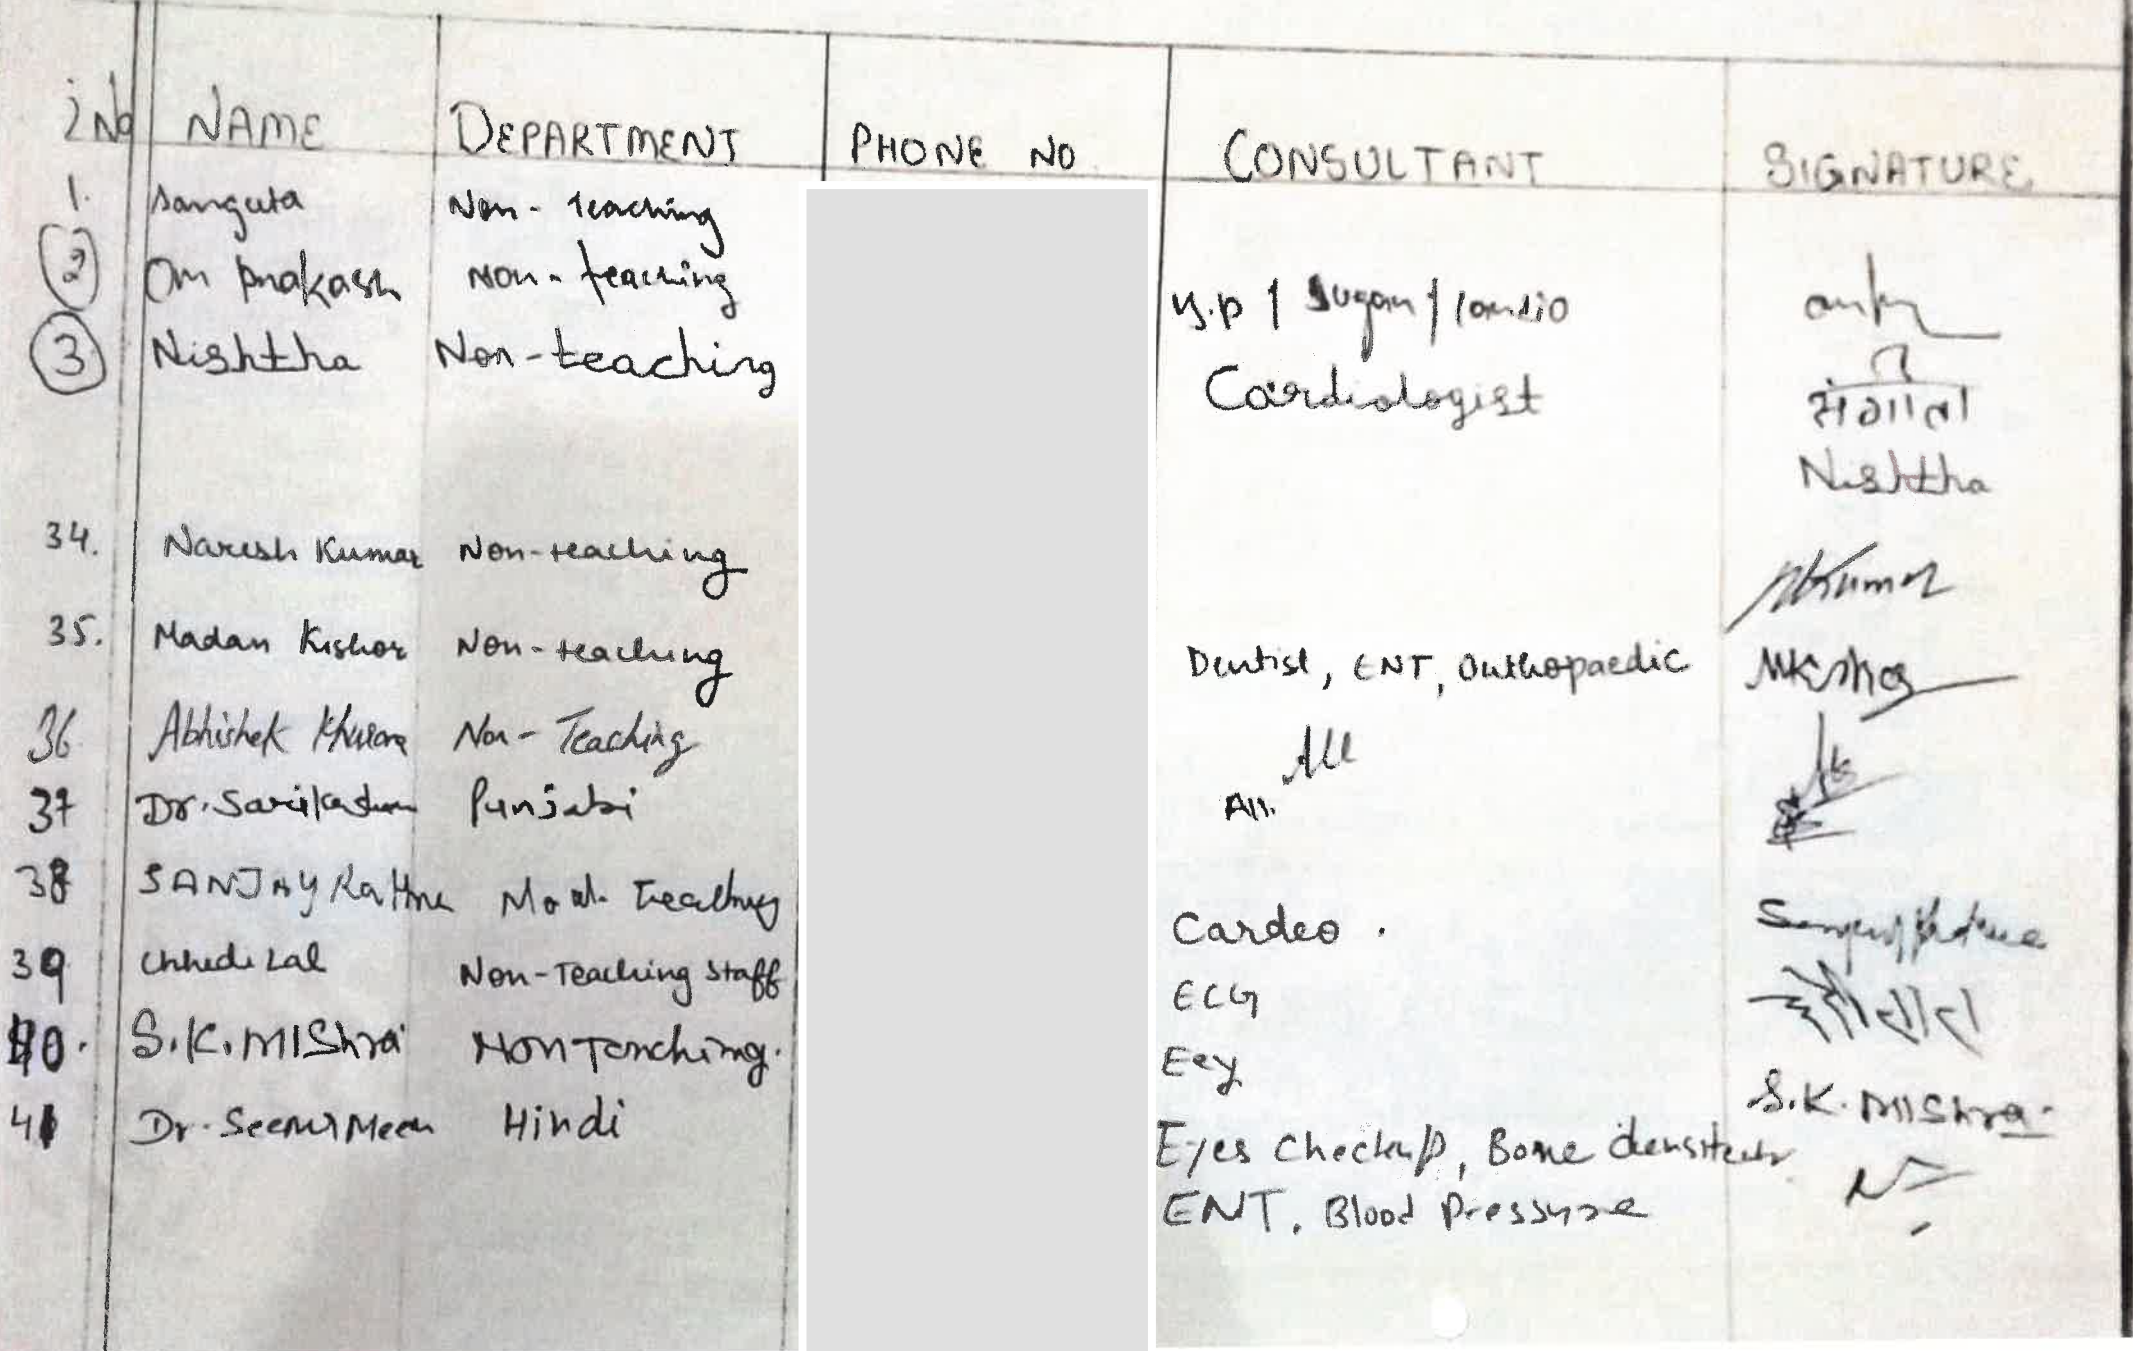 NAME DEPARTMENT PHONE NO CONSULTANT SIGNATURE
1. Sangeeta Non-teaching
2 Om Prakash Non-teaching B.P / Sugar / Cardio
3 Nishtha Non-teaching Cardiologist संगीता
Nishtha
34. Naresh Kumar Non-teaching NKumar
35. Madan Kishor Non-teaching Dentist, ENT, Orthopaedic
36 Abhishek Khurana Non-Teaching All
37 Dr. Punjabi All.
38 SANJAY Non-Teaching Cardeo.
39 Chhedi Lal Non-Teaching Staff ECG
40. S.K. MIShra NON Teaching. Eey S.K. MIShra.
41 Dr. Hindi Eyes Checkup, Bone
ENT. Blood Pressure